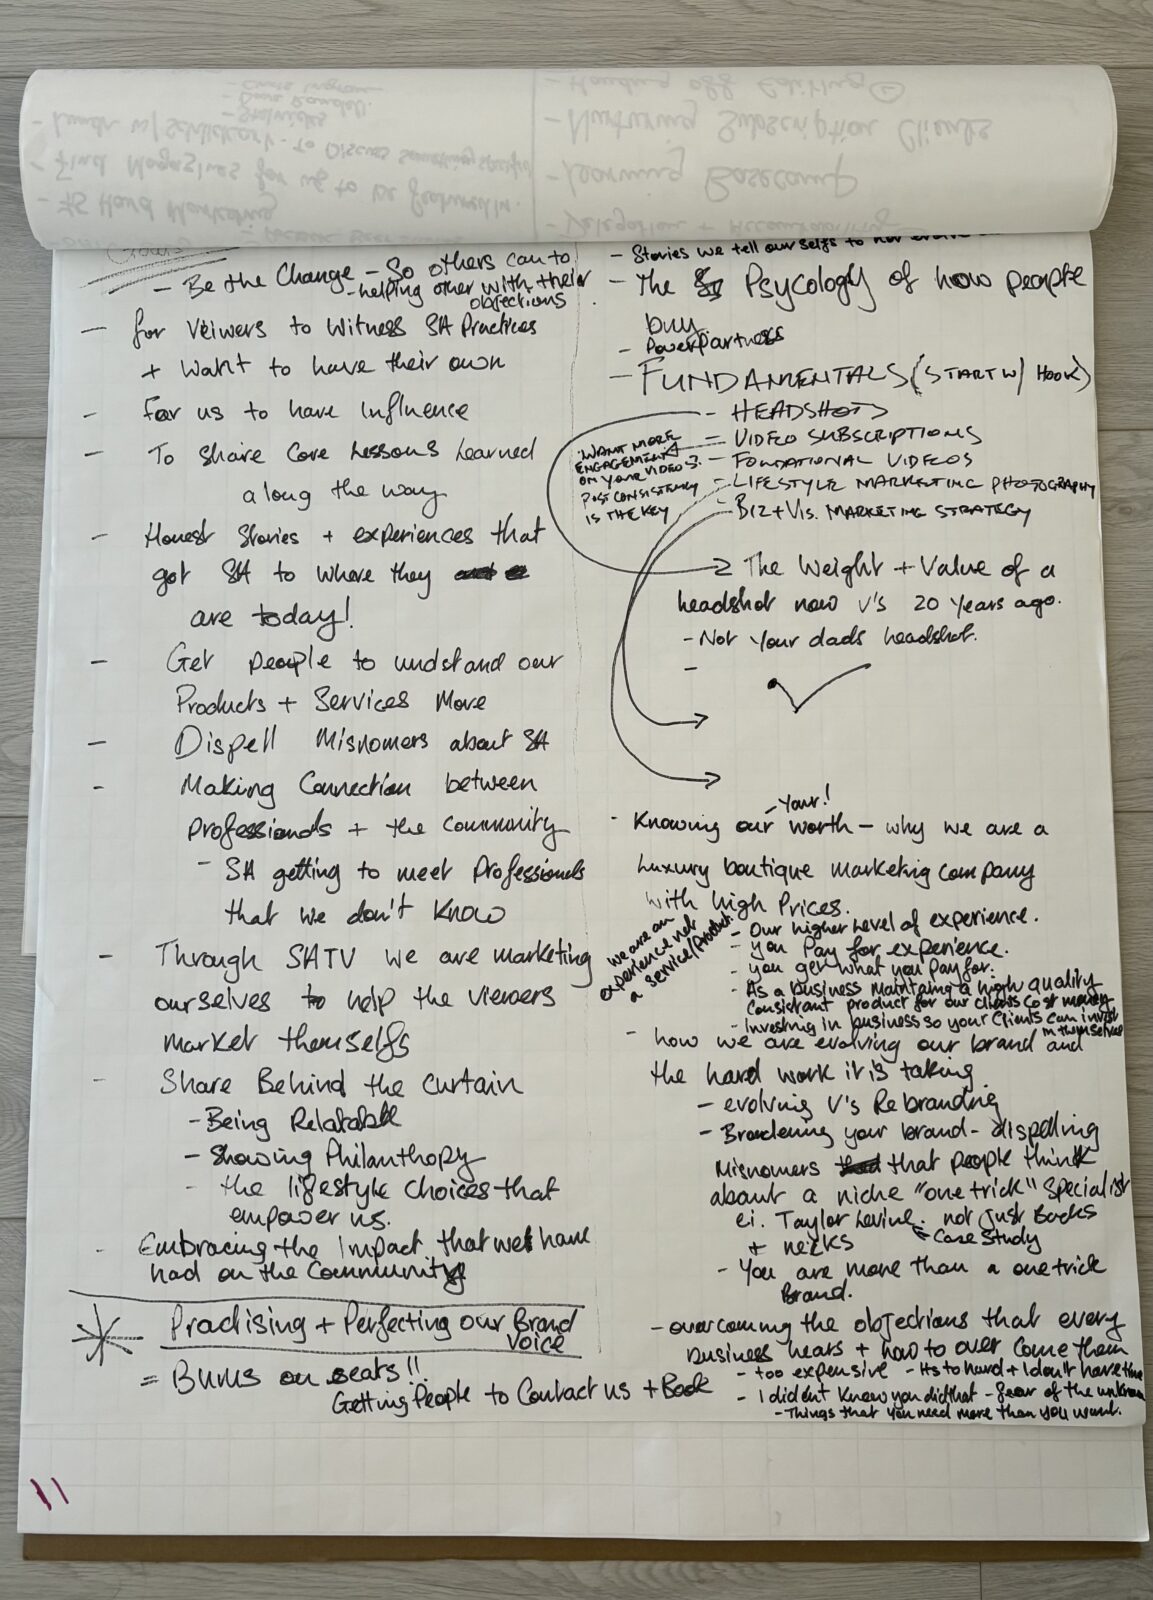 Goals
- Be the Change - So others can to
- helping other with their
objections
- for veiwers to witness SA Practices
+ want to have their own
- For us to have influence
- To share Core Lessons Learned
along the way
- Honest Stories + experiences that
got SA to where they
are today!
- Get people to undstand our
Products + Services More
- Dispell Misnomers about SA
- Making Connection between
professionals + the community
- SA getting to meet Professionals
that we don't know
- Through SATV we are marketing
ourselves to help the viewers
market themselfs
- Share Behind the curtain
- Being Relatable
- Showing Philanthopy
- the lifestyle choices that
empower us.
- Embracing the impact that we have
had on the Community
Practising + Perfecting our Brand
voice
= Bums on seats!!
Getting People to Contact us + Book
11
- Stories we tell our selfs to not
- The Psycology of how people
buy.
- Power Partners
- FUNDAMENTALS (START W/ HOOK)
- HEADSHOTS
- VIDEO SUBSCRIPTIONS
- FOUNDATIONAL VIDEOS
- LIFESTYLE MARKETING PHOTOGRAPHY
- BIZ + VIS. MARKETING STRATEGY
WANT MORE
ENGAGEMENT
ON YOUR VIDEOS?
POST CONSISTENCY
IS THE KEY
The Weight + Value of a
headshot now v's 20 years ago.
- Not your dads headshot.
-
- Your!
- Knowing our worth - why we are a
Luxury boutique marketing company
with high Prices.
we are an
experience not
a service/product.
- Our higher level of experience.
- you Pay for experience.
- you get what you pay for.
- As a business maintaing a high quality
consistant product for our clients cost money
- Investing in business so your clients can invest
in themselves
- how we are evolving our brand and
the hard work it is taking.
- evolving V's Rebranding
- Broadening your brand - dispelling
Misnomers that people think
about a niche "one trick" specialist
ei. Taylor Levine. not just Backs
+ necks
Case Study
- You are more than a one trick
Brand.
- overcoming the objections that every
business hears + how to over come them
- too expensive - Its to hard + I don't have time
- I dident know you did that - fear of the unknown
- Things that you need more than you want.